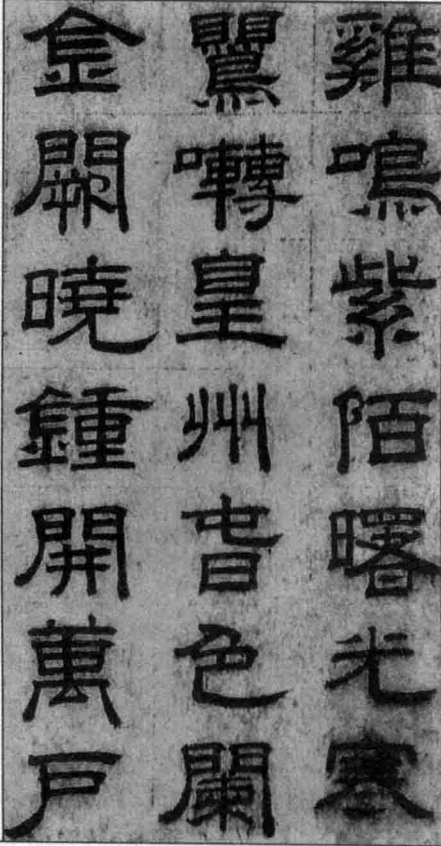 雞鳴紫陌曙光寒
鸎囀皇州旾色闌
金闕曉鍾開萬戶